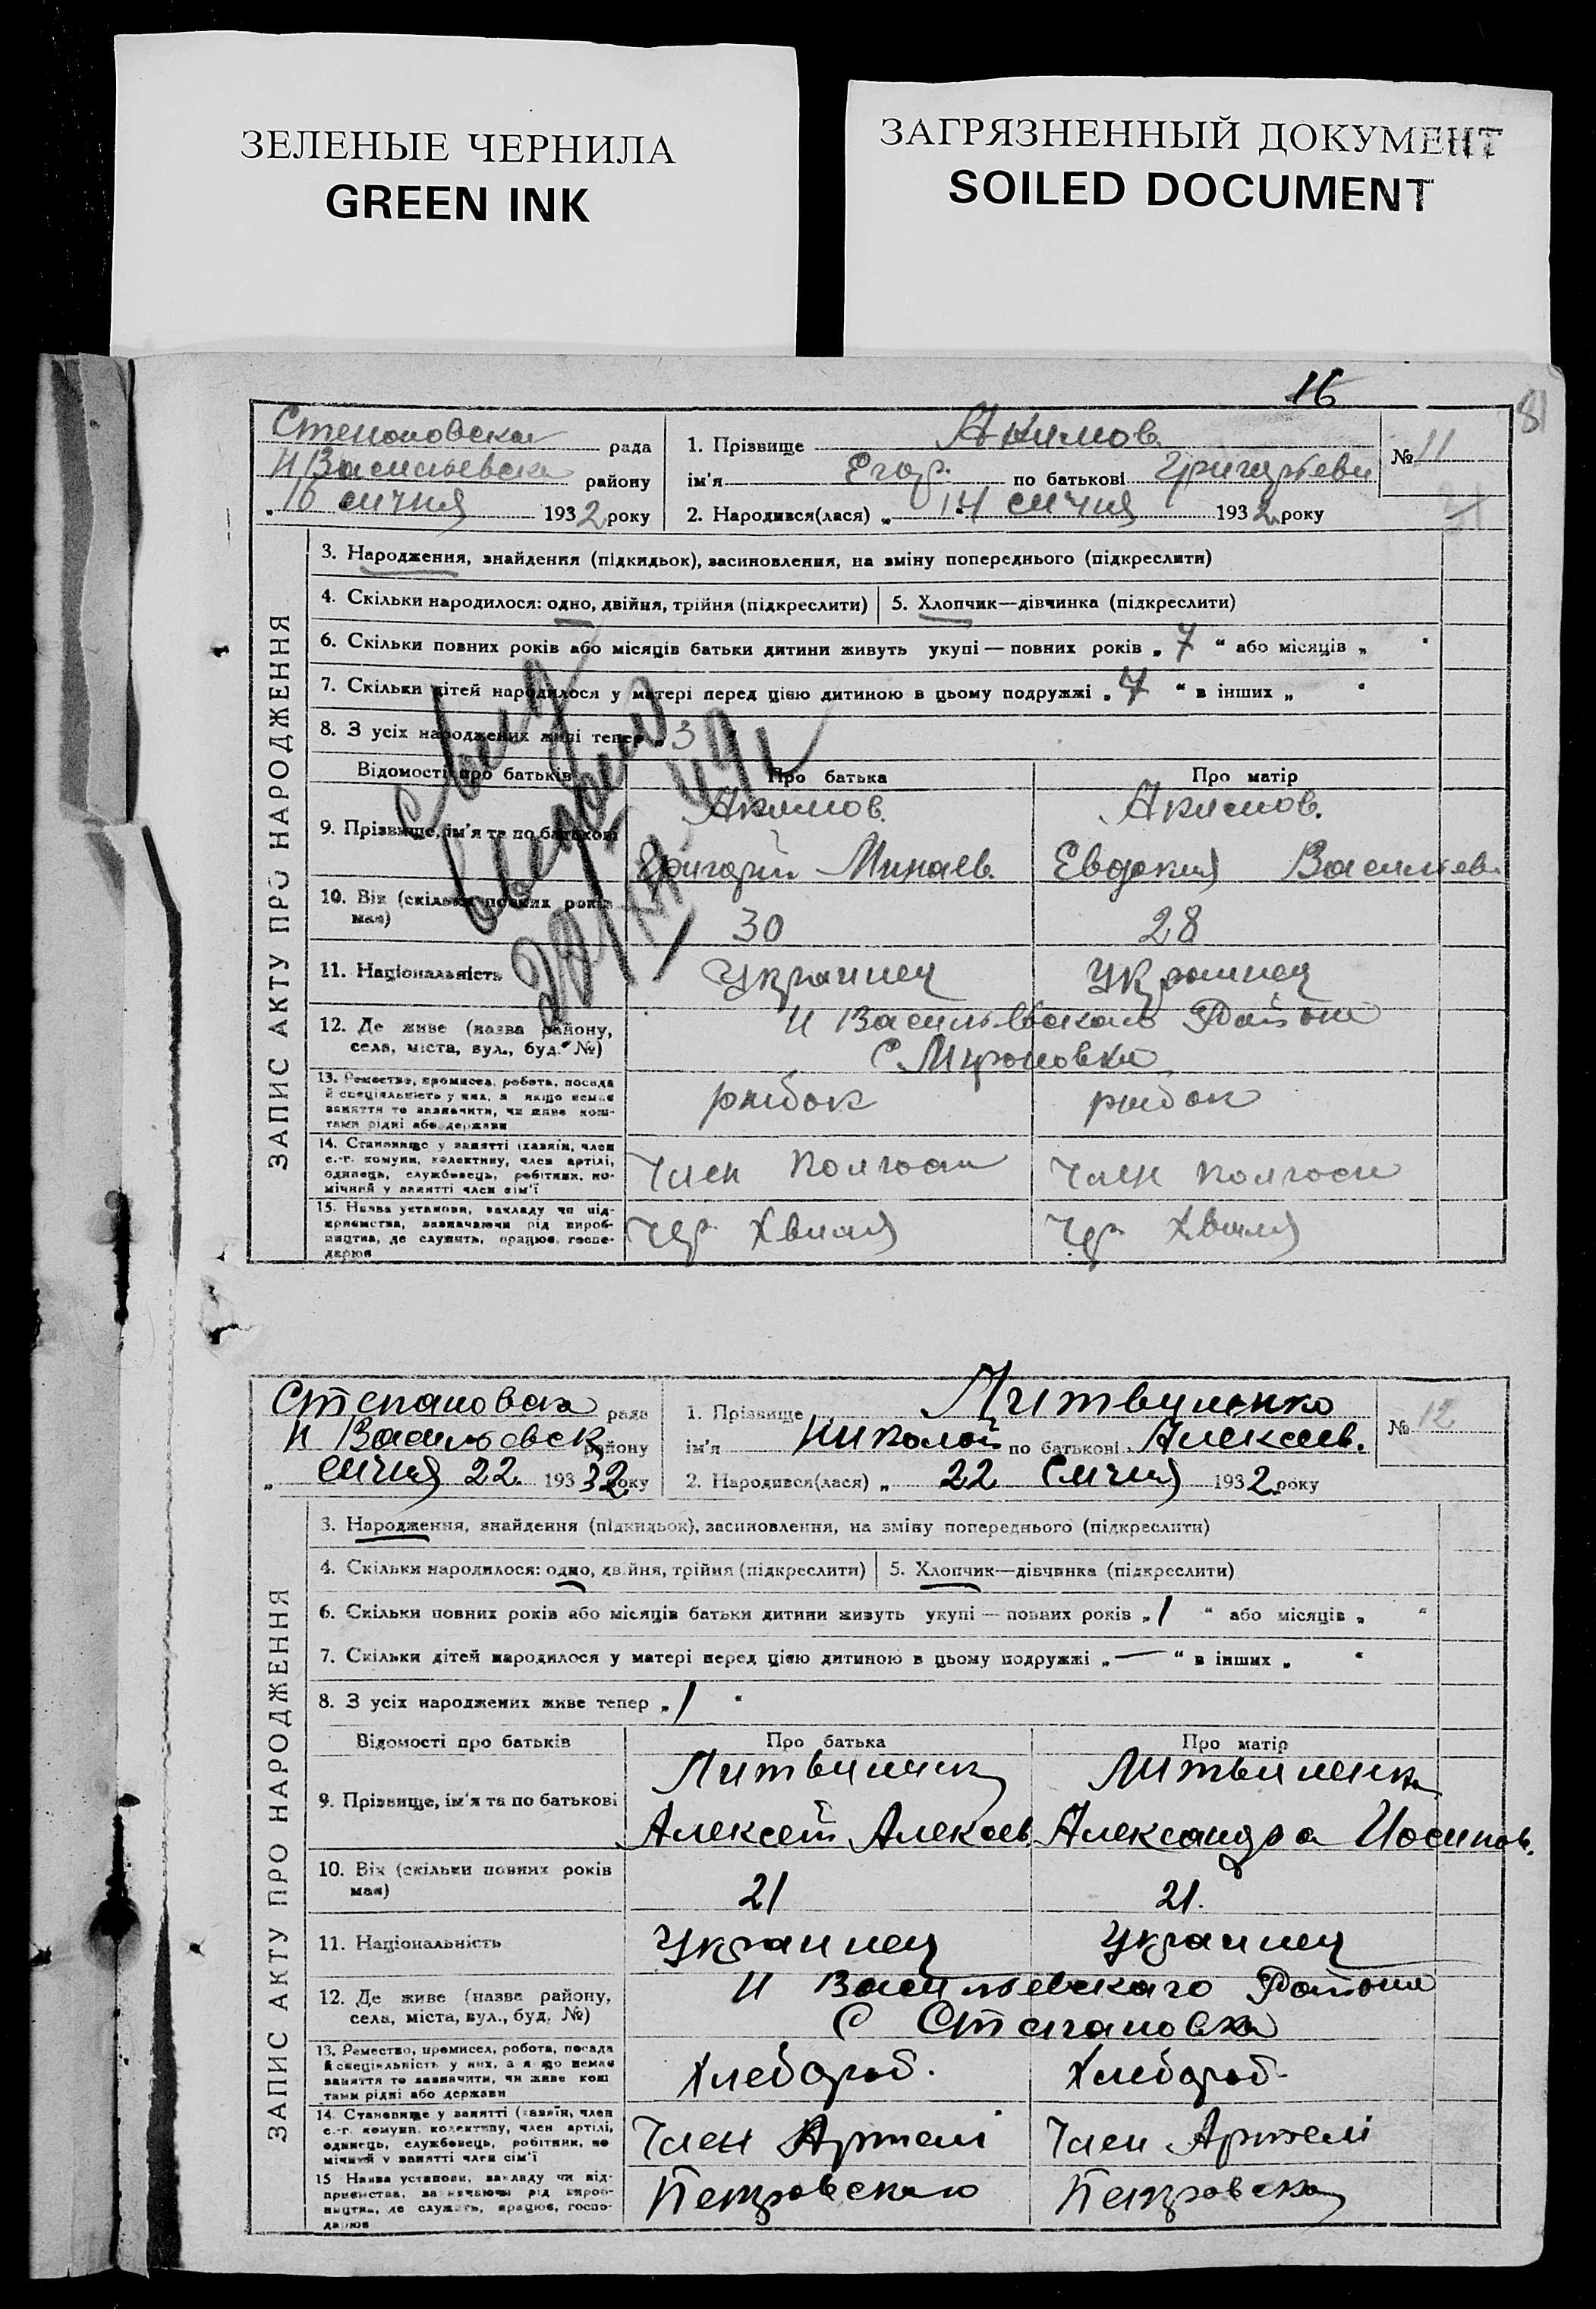 ЗЕЛЕНЫЕ ЧЕРНИЛА
GREEN INK
ЗАГРЯЗНЕННЫЙ ДОКУМЕНТ
SOILED DOCUMENT
16
81
Степоновская рада
Н Васильевска району
„16 січня 1932 року
1. Прізвище Акимов
ім'я Егор. по батькові Григорьеви
2. Народився(лася) „ 14 січня 1932 року
№ 11
ЗАПИС АКТУ ПРО НАРОДЖЕННЯ
3. Народження, знайдення (підкидьок), засиновлення, на зміну попереднього (підкреслити)
4. Скільки народилося: одно, двійня, трійня (підкреслити)
5. Хлопчик—дівчинка (підкреслити)
6. Скільки повних років або місяців батьки дитини живуть укупі — повних років „ 7 “ або місяців „ “
7. Скільки дітей народилося у матері перед цією дитиною в цьому подружжі „ 4 “ в інших „ “
8. З усіх народжених живі тепер „ 3
Відомості про батьків
Про батька
Про матір
9. Прізвище, ім'я та по батькові
Акимов.
Григорій Минаев.
Акимов.
Евдокия Васильев.
10. Вік (скільки повних років має)
30
28
11. Національність
Украинец
Украинец
12. Де живе (назва району, села, міста, вул., буд. №)
Н Васильевскаго Району
С Мироновка
13. Ремество, промисел, робота, посада й спеціяльність у них, а якщо немає заняття то зазначити, чи живе коштами рідні або держави
рибак
рибак
14. Становище у занятті (хазяїн, член с.-г. комуни, колективу, член артілі, одинець, службовець, робітник, помічний у занятті член сім'ї
Член Колгоспи
Член Колгоспи
15. Назва установи, закладу чи підприємства, зазначаючи рід виробництва, де служить, працює, господарює
Чер. Хвиля
Чер. Хвиля
Степановска рада
Н Васильевск району
„ січня 22 1932 року
1. Прізвище Литвиненко
ім'я Николай по батькові Алексеев.
2. Народився(лася) „ 22 Січня 1932 року
№ 12
ЗАПИС АКТУ ПРО НАРОДЖЕННЯ
3. Народження, знайдення (підкидьок), засиновлення, на зміну попереднього (підкреслити)
4. Скільки народилося: одно, двійня, трійня (підкреслити)
5. Хлопчик—дівчинка (підкреслити)
6. Скільки повних років або місяців батьки дитини живуть укупі — повних років „ 1 “ або місяців „ “
7. Скільки дітей народилося у матері перед цією дитиною в цьому подружжі „ — “ в інших „ “
8. З усіх народжених живе тепер „ 1 “
Відомості про батьків
Про батька
Про матір
9. Прізвище, ім'я та по батькові
Литвиненк
Алексей Алексеев.
Литвиненк
Александра Иосипов.
10. Вік (скільки повних років має)
21
21.
11. Національність
Украинец
Украинец
12. Де живе (назва району, села, міста, вул., буд. №)
Н Васильевскаго Району
С Степановка
13. Ремество, промисел, робота, посада й спеціяльність у них, а якщо немає заняття то зазначити, чи живе коштами рідні або держави
Хлебороб.
Хлебороб.
14. Становище у занятті (хазяїн, член с.-г. комуни, колективу, член артілі, одинець, службовець, робітник, помічний у занятті член сім'ї
Член Артелі
Член Артелі
15 Назва установи, закладу чи підприємства, зазначаючи рід виробництва, де служить, працює, господарює
Петровскаго
Петровска